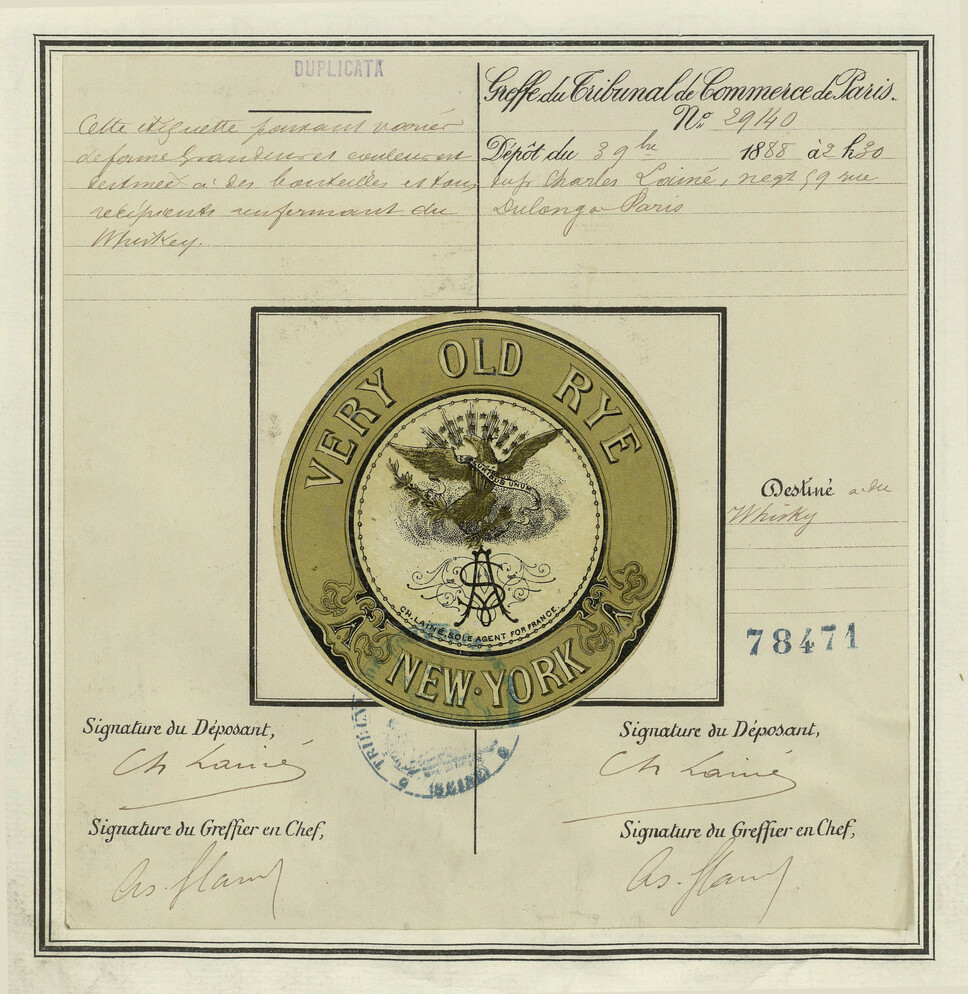 DUPLICATA
Cette étiquette pouvant varier
de forme grandeur et couleur est
destinée à des bouteilles et tous
récipients renfermant du
Whiskey.
Greffe du Tribunal de Commerce de Paris.
No. 29140
Dépôt du 3 9bre 1888 à 2 h 30
Charles Lainé, negt 59 rue
Dulong à Paris
VERY OLD RYE
PLURIBUS UNUM
AS
CH. LAINÉ, SOLE AGENT FOR FRANCE.
NEW-YORK
Destiné à du
Whisky
78471
(SEINE)
Signature du Déposant,
Ch Lainé
Signature du Greffier en Chef,
Signature du Déposant,
Ch Lainé
Signature du Greffier en Chef,